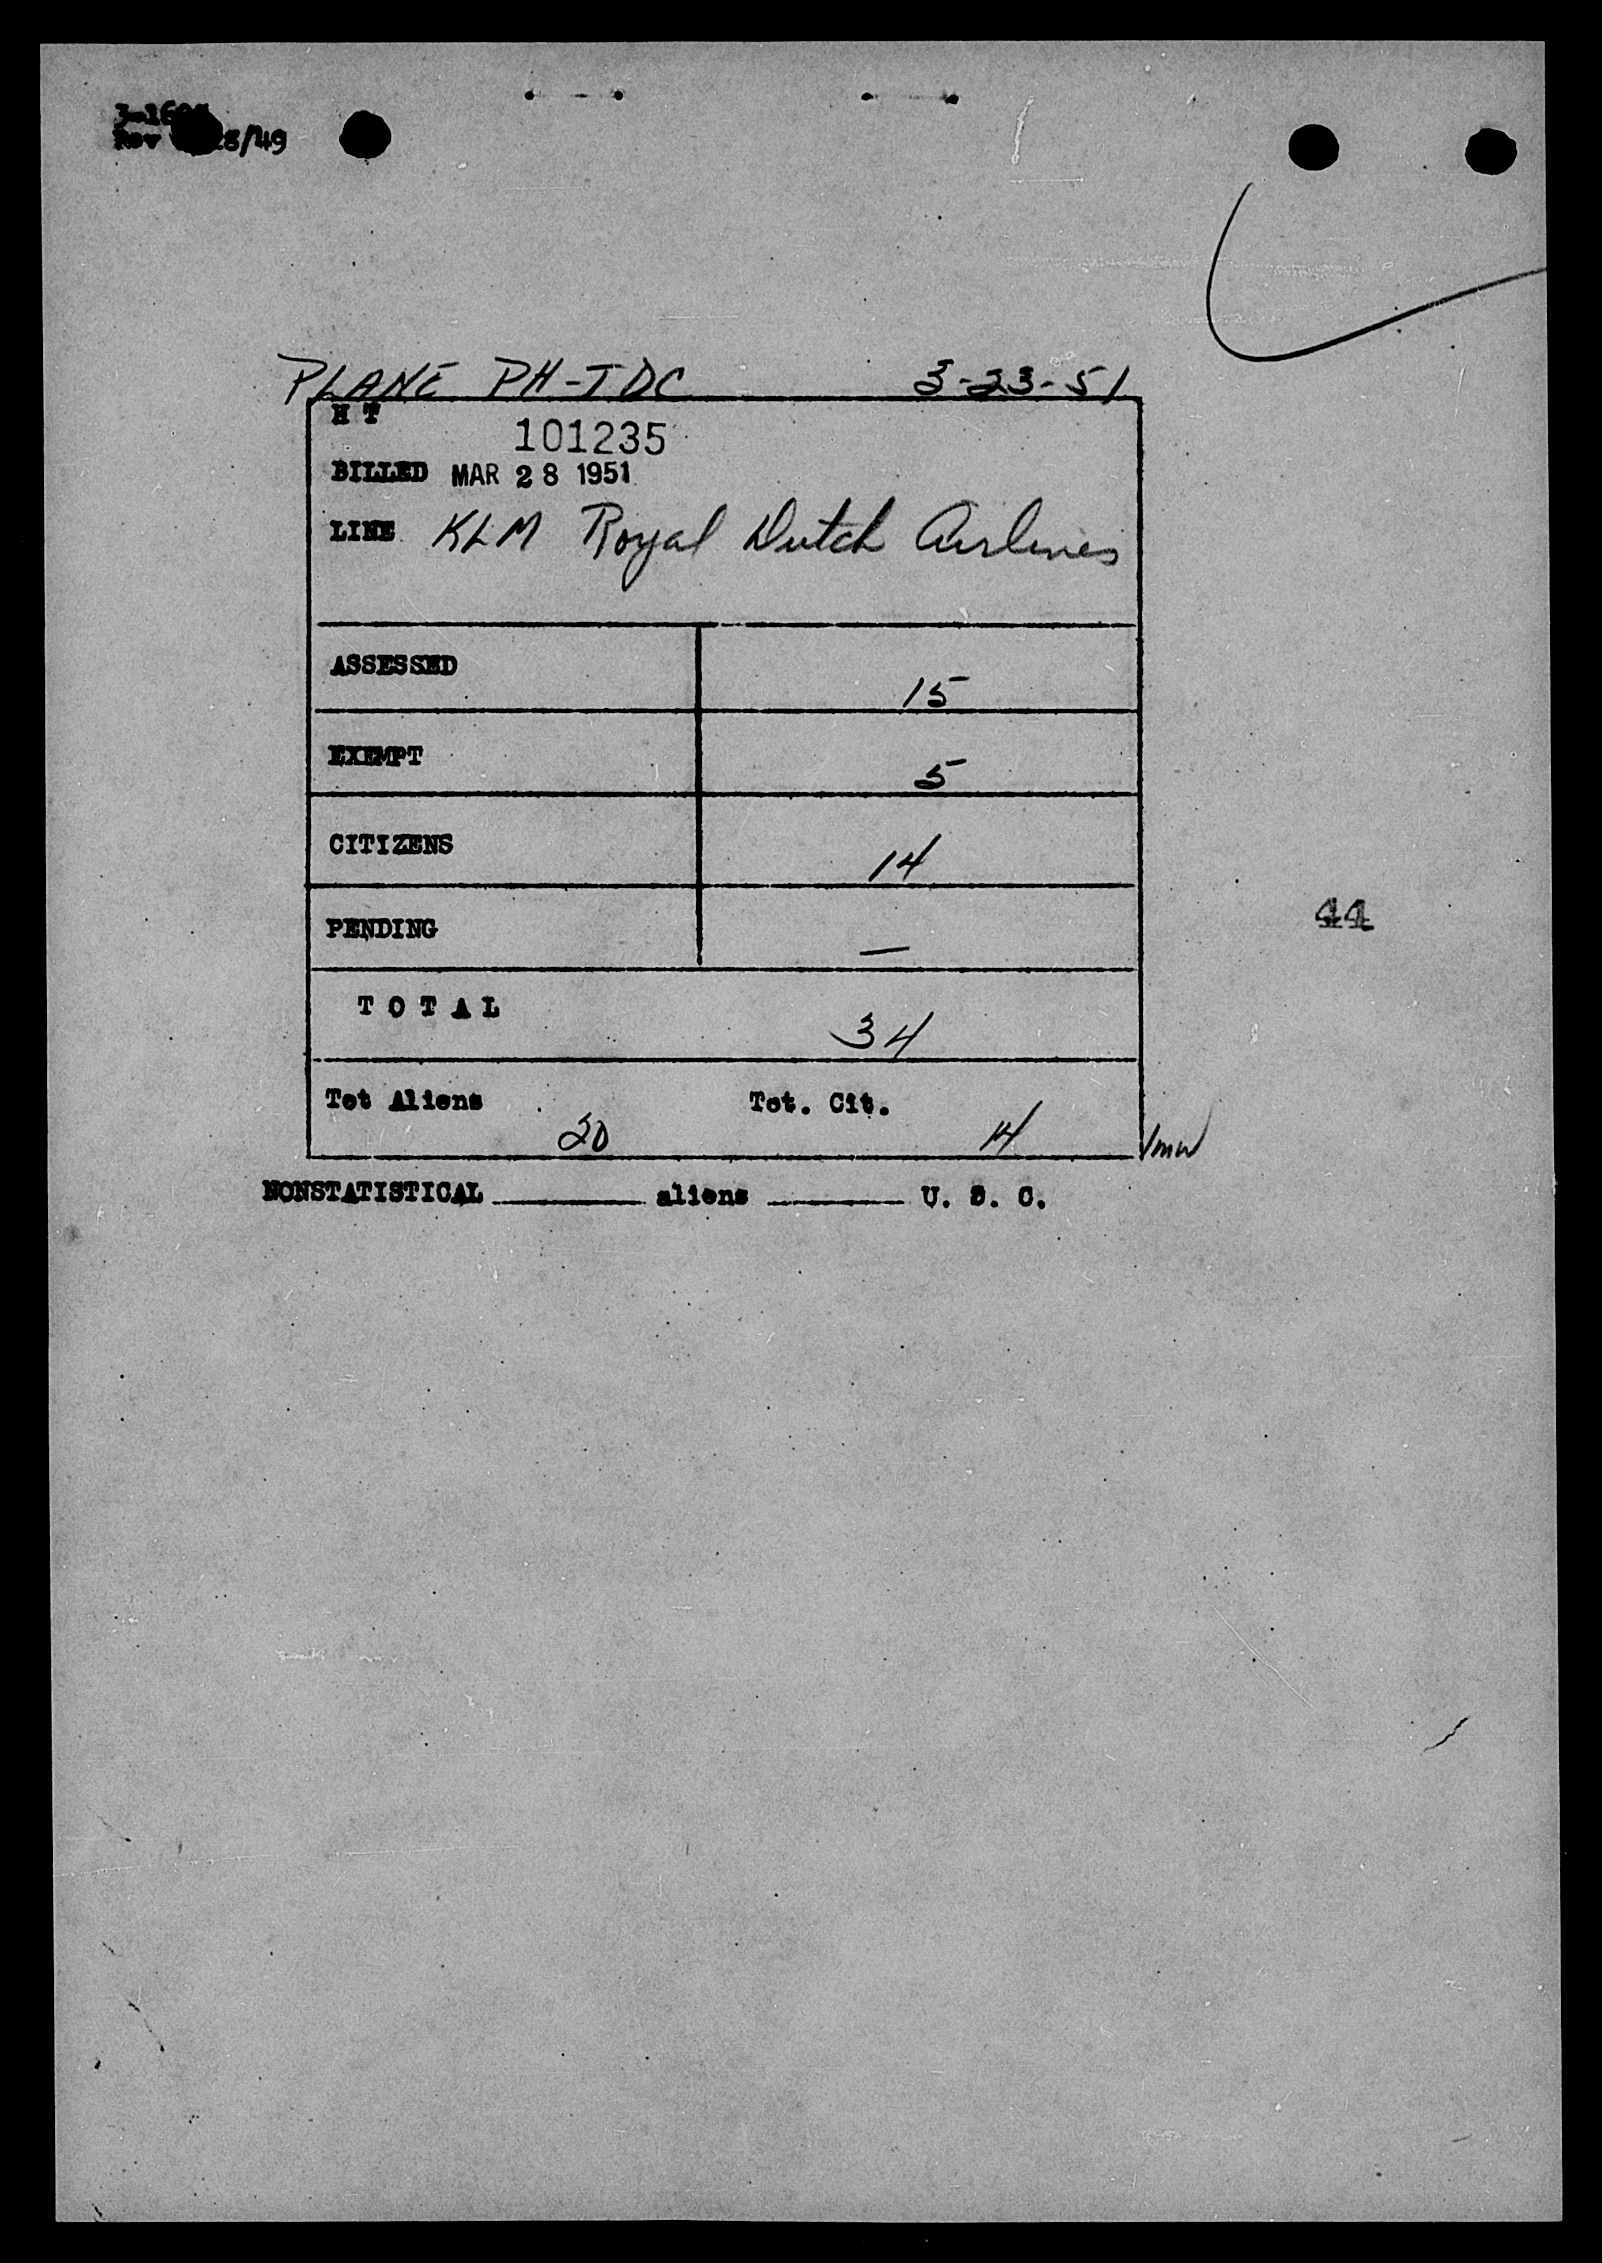 8/49
PLANE PH-TDC 3-23-51
H T
101235
BILLED MAR 28 1951
LINE KLM Royal Dutch Airlines
ASSESSED 15
EXEMPT 5
CITIZENS 14
44
PENDING —
T O T A L 34
Tot Aliens 20 Tot. Cit. 14
NONSTATISTICAL ______ aliens ______ U. S. C.